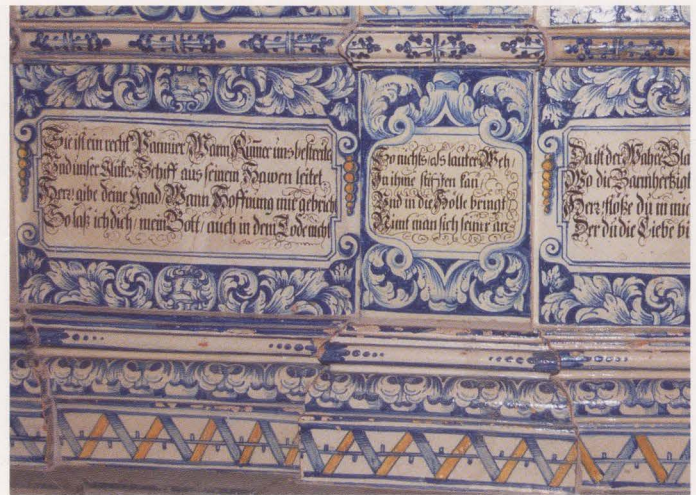 Sie ist ein recht Pannier, Wann Kumer uns bestreit
Und unser Glükes Schiff aus seinem Hawen leitet
Herr, gibe deine Gnad, Wann Hoffnung mir gebrich
So laß ich dich, mein Gott, auch in dem Tode nicht
So nichts, als lauter Weh,
In ihme stürzen kan
Und in die Hölle bringt
Nimt man sich seiner an.
Da ist der Wahre
Wo die Barmherzigk
Herr flöße du in mic
Der du die Liebe bi